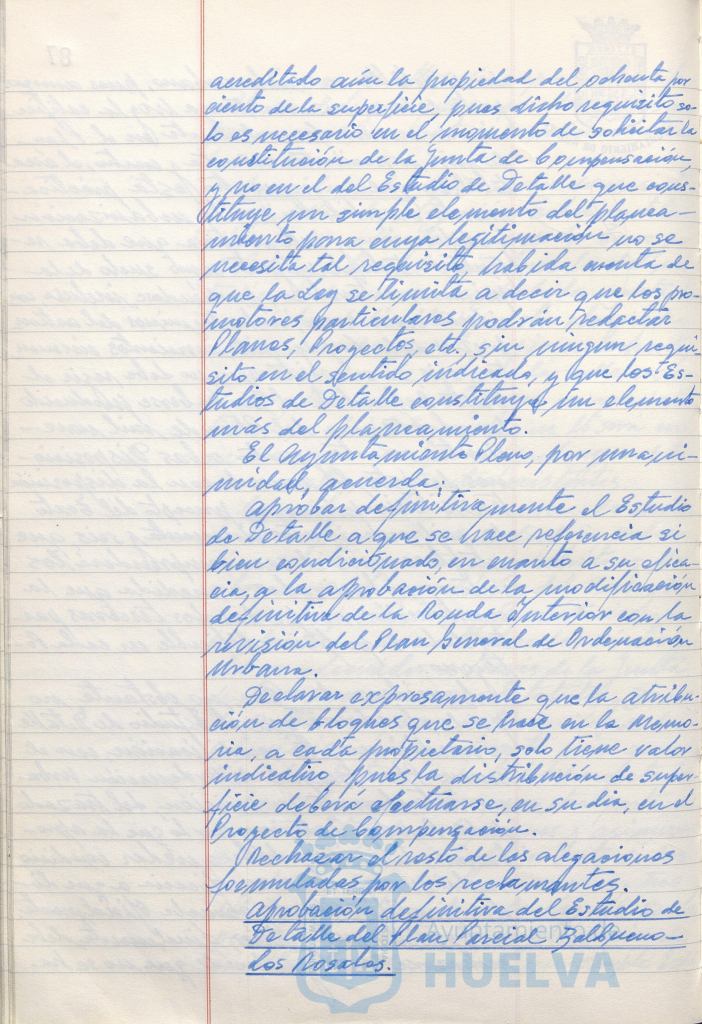 acreditado aún la propiedad del ochenta por
ciento de la superficie, pues dicho requisito so-
lo es necesario en el momento de solicitar la
constitución de la Junta de Compensación,
y no en el del Estudio de Detalle que cons-
tituye un simple elemento del planea-
miento para cuya legitimación no se
necesita tal requisito, habida cuenta de
que la Ley se limita a decir que los pro-
motores particulares podrán redactar
Planes, Proyectos, etc., sin ningun requi-
sito en el sentido indicado, y que los Es-
tudios de Detalle constituyen un elemento
más del planeamiento.
El Ayuntamiento Pleno, por unani-
midad, acuerda:
Aprobar definitivamente el Estudio
de Detalle a que se hace referencia si
bien condicionado, en cuanto a su efica-
cia, a la aprobación de la modificación
definitiva de la Ronda Interior con la
revisión del Plan General de Ordenación
Urbana.
Declarar expresamente que la atribu-
ción de bloques que se hace en la Memo-
ria, a cada propietario, solo tiene valor
indicativo, pues la distribución de super-
ficie deberá efectuarse, en su dia, en el
Proyecto de Compensación.
Rechazar el resto de las alegaciones
formuladas por los reclamantes.
Aprobación definitiva del Estudio de
Detalle del Plan Parcial Balbueno-
Los Rosales.
Ayuntamiento
HUELVA